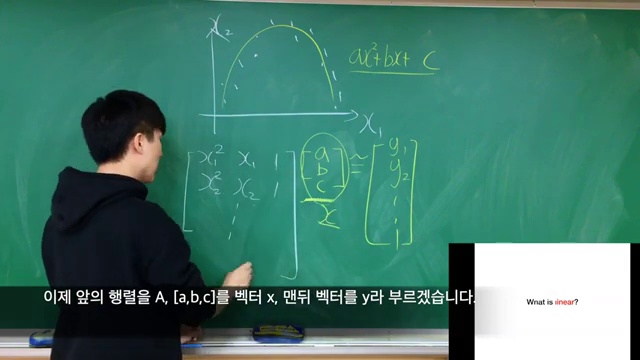 x₂
ax²+bx+ c
x₁
x₁² x₁ 1 a ≃ y₁
x₂² x₂ 1 b y₂
c
x
이제 앞의 행렬을 A, [a,b,c]를 벡터 x, 맨뒤 벡터를 y라 부르겠습니다.
What is linear?